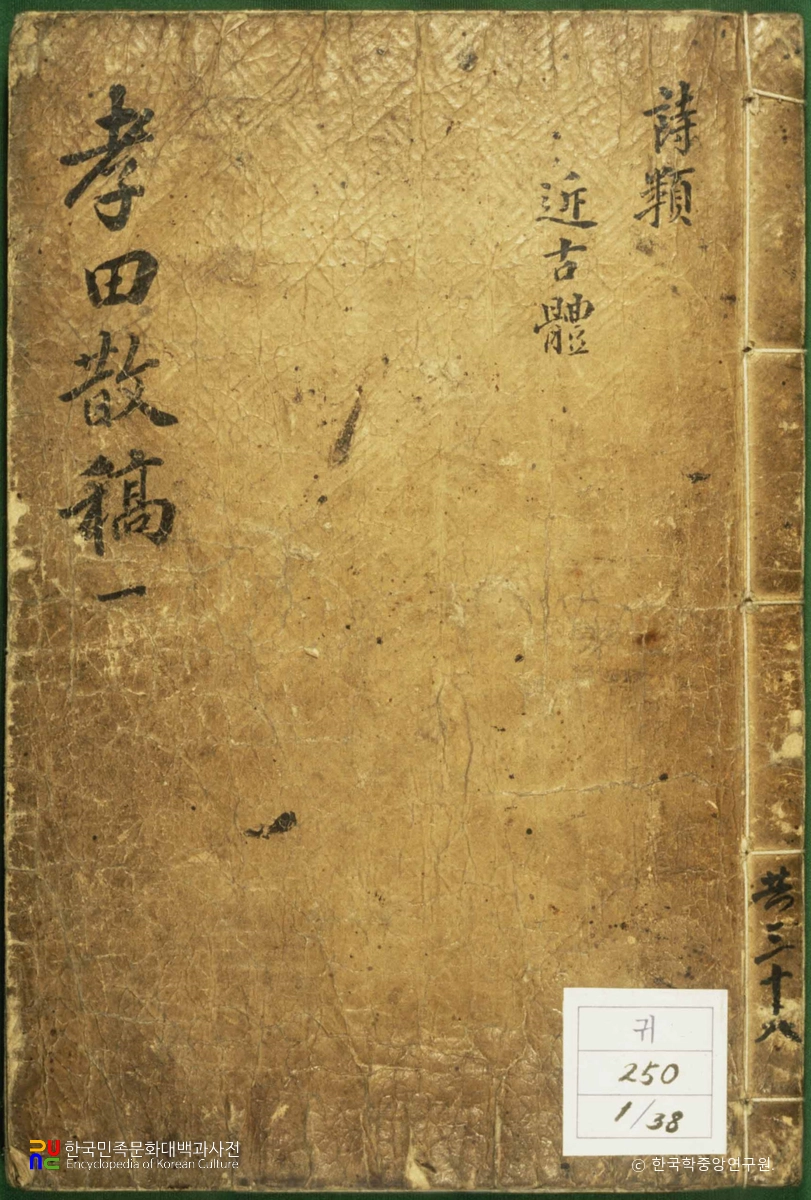 詩類
近古體
孝田散稿 一
共三十八
귀
250
1/38
한국민족문화대백과사전
Encyclopedia of Korean Culture
© 한국학중앙연구원